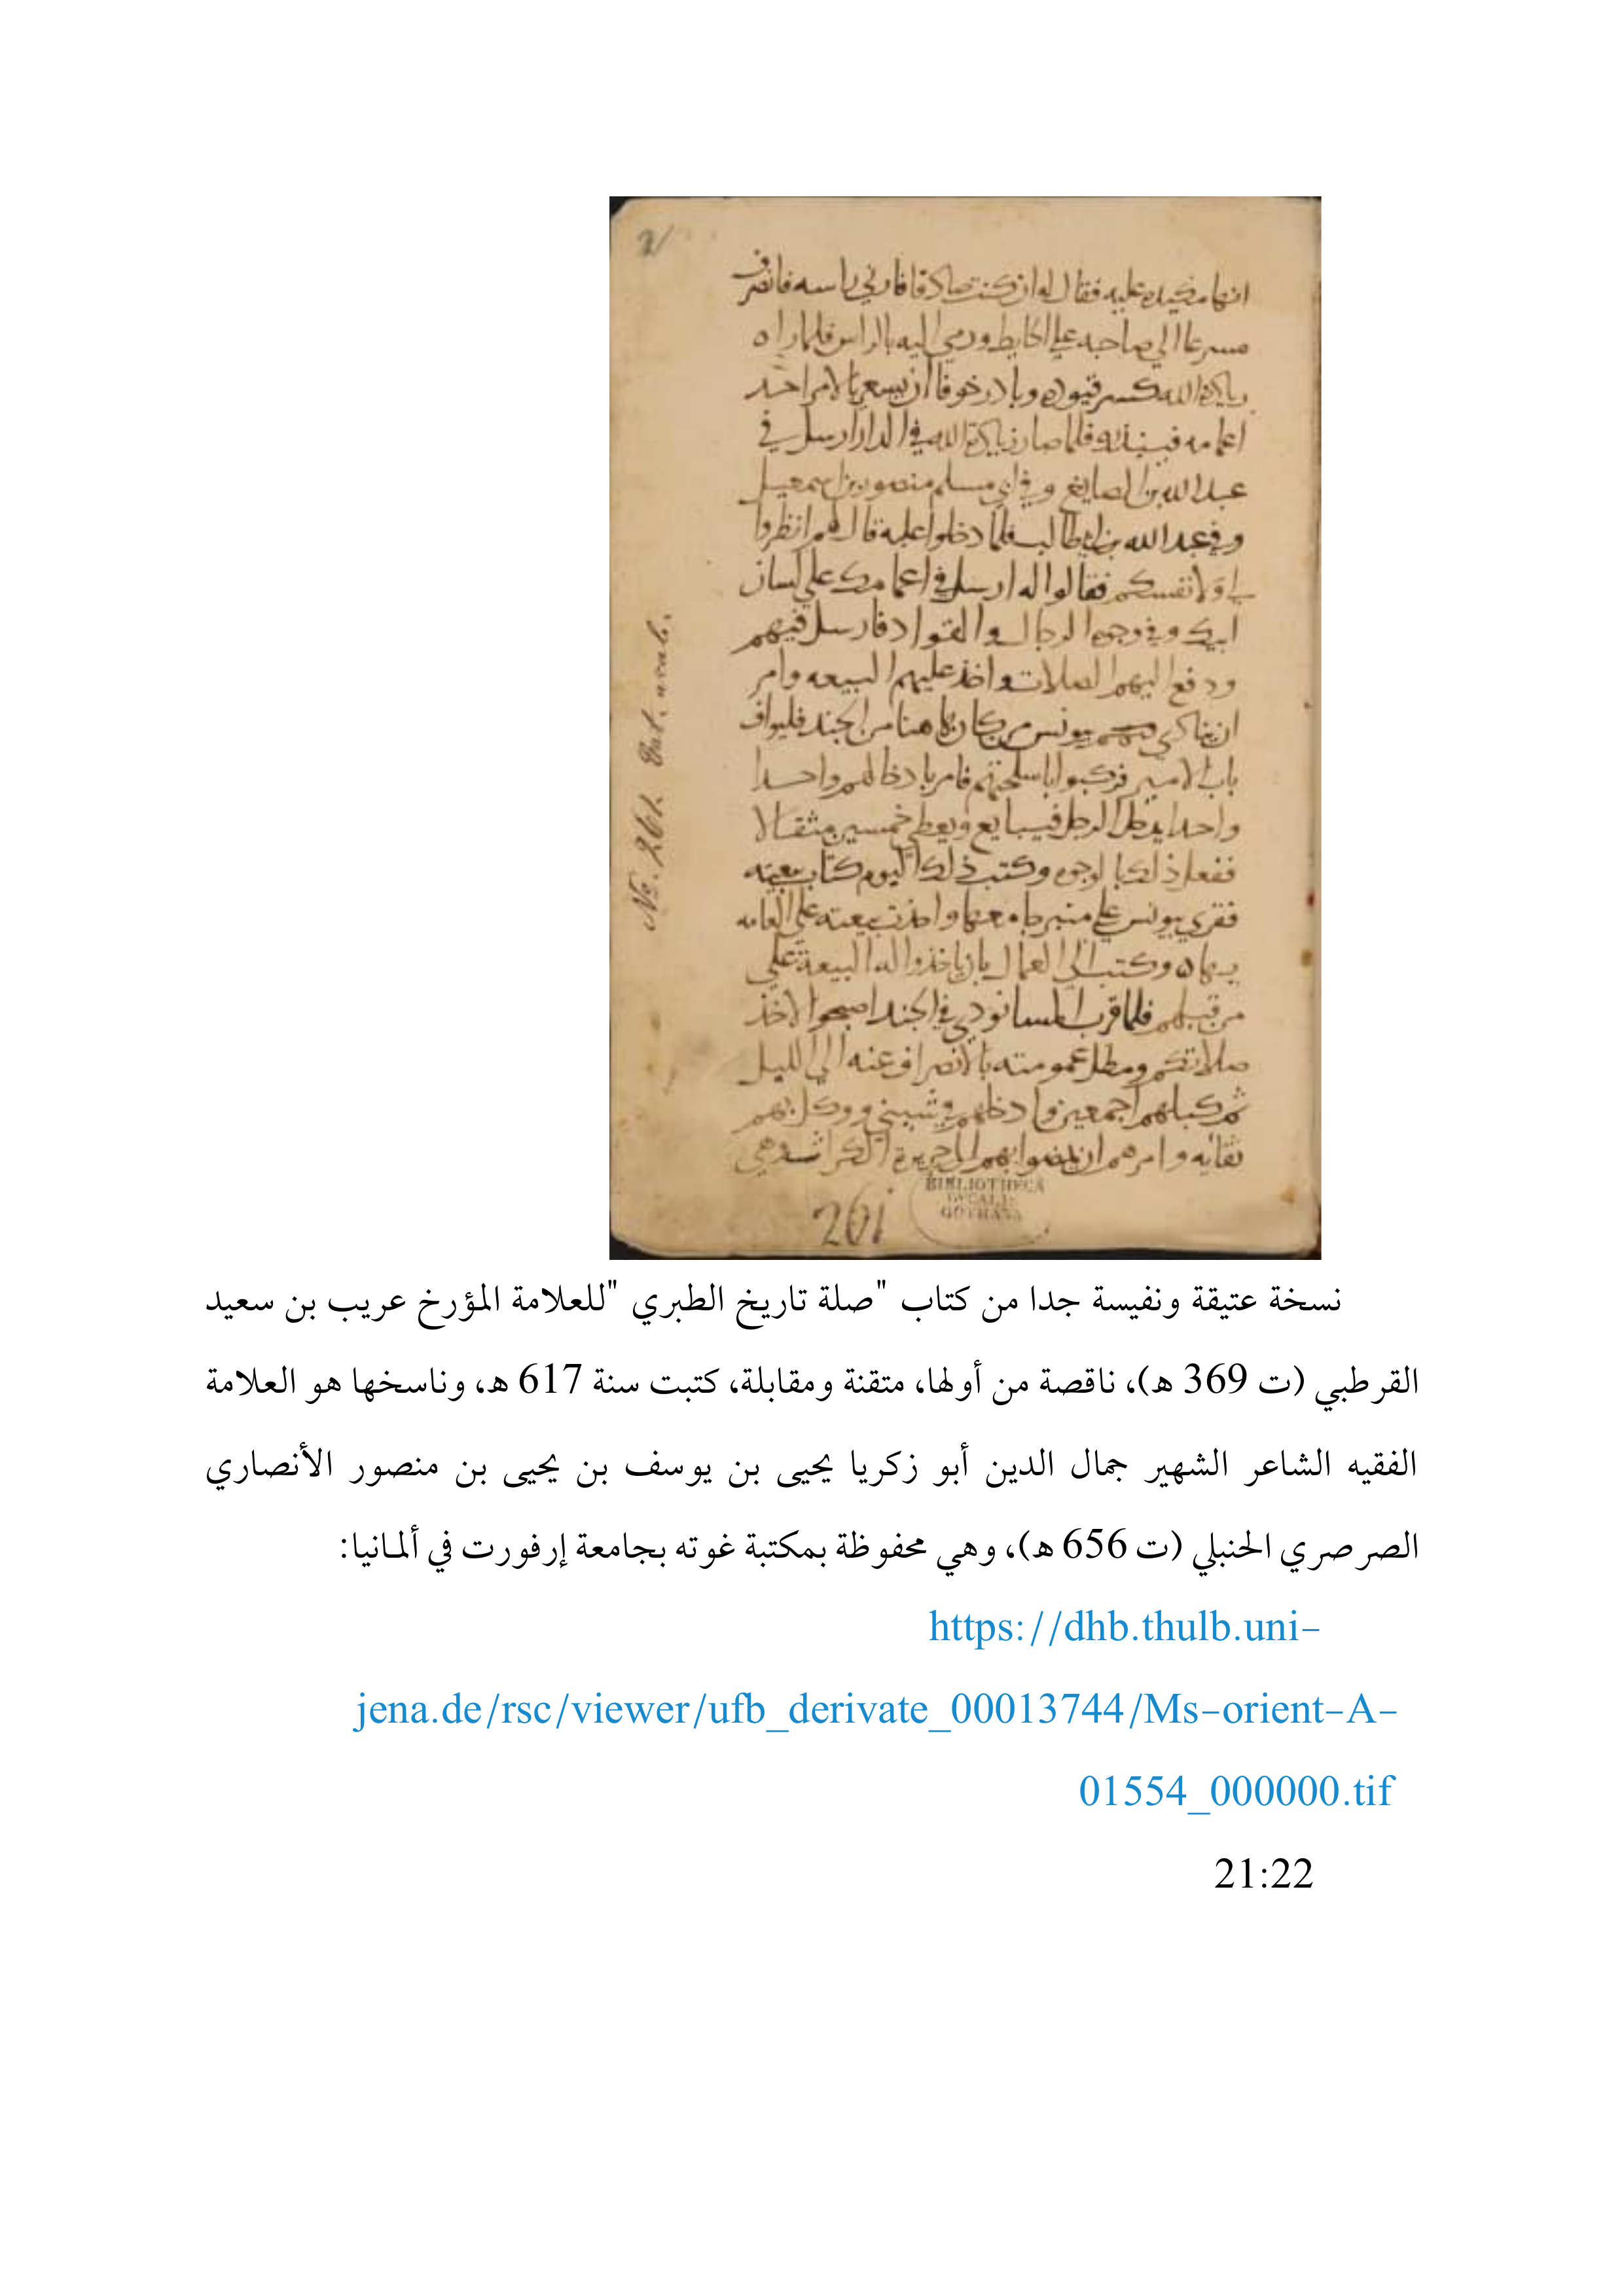 2
انها مكيده عليه فقال له ان كنت صادقا فارني راسه فانصرف
مسرعا الي صاحبه علي الحايط ورمي اليه بالراس فلما راه
زيادة الله كسر قيوده وبادر خوفا ان يسعي بالامر احد
اعمامه فلما صار زيادة الله في الدار ارسل في
عبد الله بن الصايغ وفي ابي مسلم منصور بن اسمعيل
وفي عبد الله بن ابي طالب فلما دخلوا عليه قال لهم انظروا
لي ولانفسكم فقالوا له ارسل في اعمامك علي لسان
ابيك وفي وجوه الرجال والقواد فارسل فيهم
ودفع اليهم الصلات واخذ عليهم البيعه وامر
ان ينادي بتونس من كان هاهنا من الجند فليواف
باب الامير فركبوا باسلحتهم فامر بادخالهم واحدا
واحدا يدخل الرجل فيبايع ويعطي خمسين مثقالا
ففعل ذلك بالوجوه وكتب ذلك اليوم كتاب بيعته
فقري بتونس علي منبر جامعها واخذت بيعته علي العامه
وكتب الي العمال بان ياخذوا له البيعة علي
من قبلهم فلما قرب المسا نودي في الجند اصبحوا لاخذ
صلاتكم ومطل عمومته بالانصراف عنه الي الليل
ثم كبلهم اجمعين وادخلهم في شيني ووكل بهم
ثقاته وامرهم ان يمضوا بهم الي جزيرة الكراث وهي
No. 261.
261
BIBLIOTHECA
DUCALIS
GOTHANA
نسخة عتيقة ونفيسة جدا من كتاب "صلة تاريخ الطبري "للعلامة المؤرخ عريب بن سعيد
القرطبي (ت 369 هـ)، ناقصة من أولها، متقنة ومقابلة، كتبت سنة 617 هـ، وناسخها هو العلامة
الفقيه الشاعر الشهير جمال الدين أبو زكريا يحيى بن يوسف بن يحيى بن منصور الأنصاري
الصرصري الحنبلي (ت 656 هـ)، وهي محفوظة بمكتبة غوته بجامعة إرفورت في ألمانيا:
https://dhb.thulb.uni-
jena.de/rsc/viewer/ufb_derivate_00013744/Ms-orient-A-
01554_000000.tif
21:22